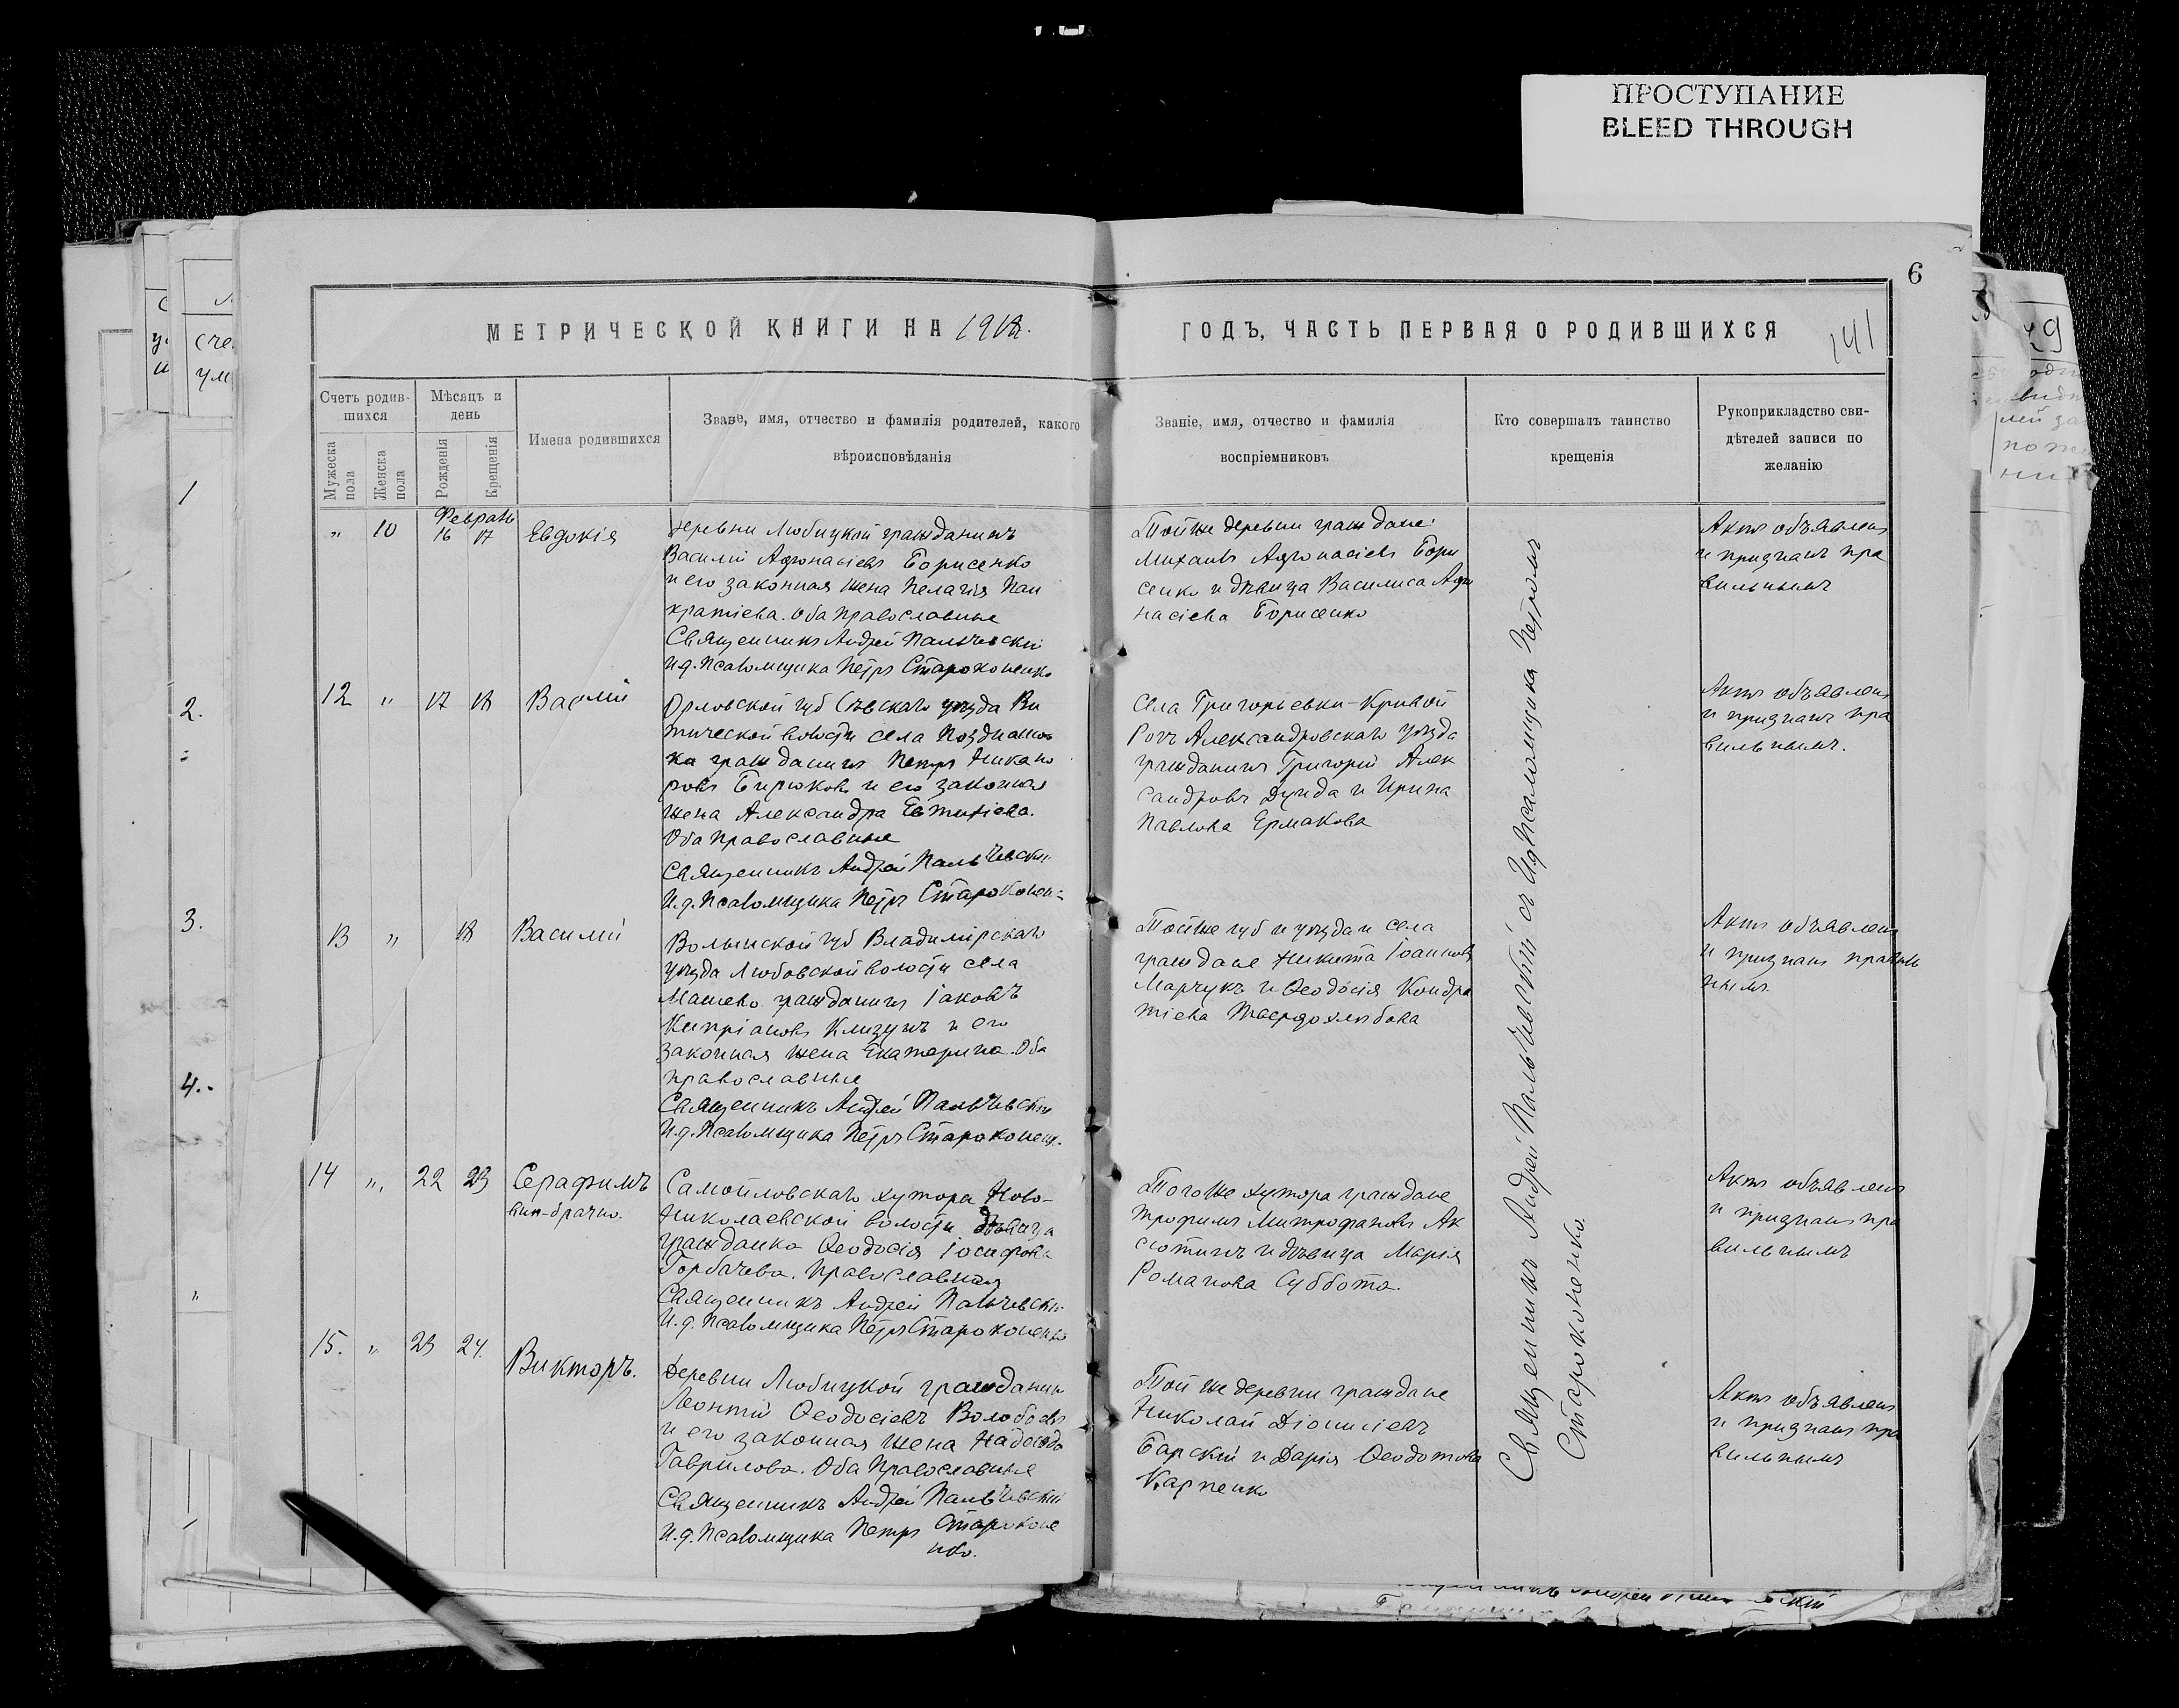 ПРОСТУПАНИЕ
BLEED THROUGH
6
МЕТРИЧЕСКОЙ КНИГИ НА 1918.
ГОДЪ, ЧАСТЬ ПЕРВАЯ О РОДИВШИХСЯ
141
Счетъ родив-
шихся
Мужеска
пола
Женска
пола
Мѣсяцъ и
день
Рожденія
Крещенія
Имена родившихся
Званe, имя, отчество и фамилія родителей, какого
вѣроисповѣданія
Званіе, имя, отчество и фамилія
воспріемниковъ
Кто совершалъ таинство
крещенія
Рукоприкладство сви-
дѣтелей записи по
желанію
Февраль
" 10 16 17 Евдокія
деревни Любицкой гражданинъ
Василій Афонасіевъ Борисенко
и его законная жена Пелагія Пан
кратіева. Оба православные
Священникъ Андрей Пальчевскій
И.д. Псаломщика Петръ Староконенко
Тойже деревни граждане:
Михаилъ Афонасіевъ Бори
сенко и дѣвица Василиса Афо
насіева Борисенко
Актъ объявленъ
и признанъ пра
вильнымъ
12 " 17 18 Василій
Орловской губ Сѣвскаго уѣзда
тической волости села
ка гражданинъ Петръ Никано
ровъ Бирюковъ и его законная
жена Александра Евтихіева.
Оба православные
Священникъ Андрей Пальчевскій
И.д. Псаломщика Петръ Староконен=
Села Григорьевки-Кривой
Рогъ Александровскаго уѣзда
гражданинъ Григорій Алек
сандровъ Дзунда и Ирина
Павлова Ермакова
Актъ объявленъ
и признанъ пра
вильнымъ.
13 " 18 Василій
Волынской губ Владимірскаго
уѣзда Любовской волости села
Машево гражданинъ Іаковъ
Кипріановъ Клизунъ и его
законная жена Екатерина. Оба
православные
Священникъ Андрей Пальчевскій
И.д. Псаломщика Петръ Староконен.
Тойже губ и уѣзда и села
граждане Никита Іоанновъ
Марчукъ и Ѳеодосія Кондра
тіева Твердохлѣбова
Актъ объявленъ
и признанъ правиль
нымъ
14 ". 22 23 Серафимъ
внѣ-брачно.
Самойловскаго хутора Ново-
Николаевской волости дѣвица
гражданка Ѳеодосія Іосифова
Горбачева. Православная
Священникъ Андрей Пальчевскій
И.д. Псаломщика Петръ Староконенко
Тогоже хутора граждане
Трофимъ Митрофановъ Ак
сютинъ и дѣвица Марія
Романова Суббота.
Актъ объявленъ
и признанъ пра
вильнымъ
15. " 23 24. Викторъ.
Деревни Любицкой гражданинъ
Леонтій Ѳеодосіевъ Волобоевъ
и его законная жена Надежда
Гаврилова. Оба православные
Священникъ Андрей Пальчевскій
И.д. Псаломщика Петръ Староконе
нко.
Той же деревни граждане
Николай Діонисіевъ
Барскій и Дарія Ѳеодотова
Карпенко
Актъ объявленъ
и признанъ пра
вильнымъ
Священникъ Андрей Пальчевскій съ И.д. Псаломщика Петромъ
Староконенко.
1
2.
3.
4.